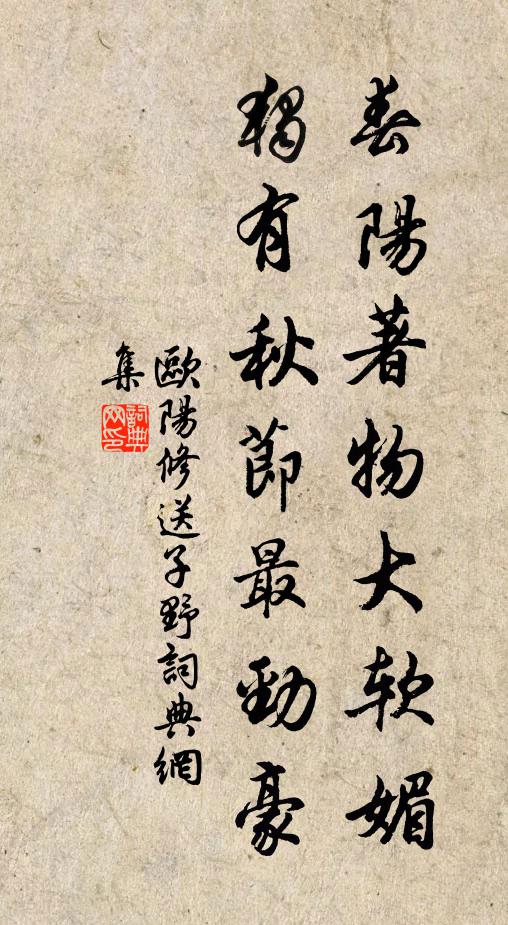 春陽著物大软媚
獨有秋節最勁豪
歐陽修送子野詞典網
集
詞典網印